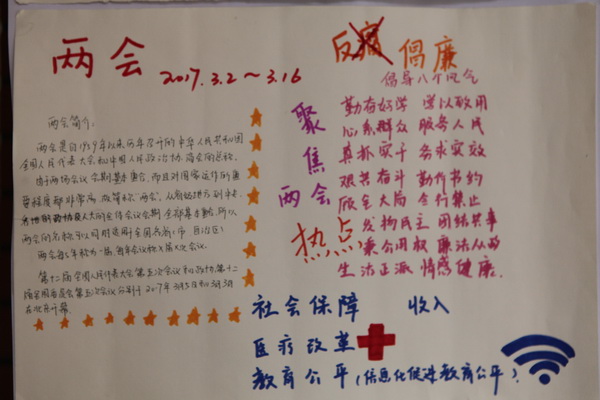 两会
2017.3.2～3.16
两会简介:
两会是自1959年以来历年召开的中华人民共和国
全国人民代表大会和中国人民政治协商会的统称。
由于两场会议会期基本重合,而且对国家运作的重
要程度都非常高,故简称“两会”。从省级地方到中央,
各地的政协及人大的全体会议会期全部基本重合,所以
两会的名称可以同时适用全国各省(市、自治区)
两会每5年称为一届,每年会议称X届X次会议。
第十二届全国人民代表大会第五次会议和政协第十二
届全国委员会第五次会议分别于2017年3月5日和3月3日
在北京开幕
反腐 倡廉
倡导八个风气
聚焦两会
热点
勤奋好学 学以致用
心系群众 服务人民
真抓实干 务求实效
艰苦奋斗 勤俭节约
顾全大局 令行禁止
发扬民主 团结共事
秉公用权 廉洁从政
生活正派 情感健康.
社会保障 收入
医疗改革
教育公平(信息化促进教育公平)